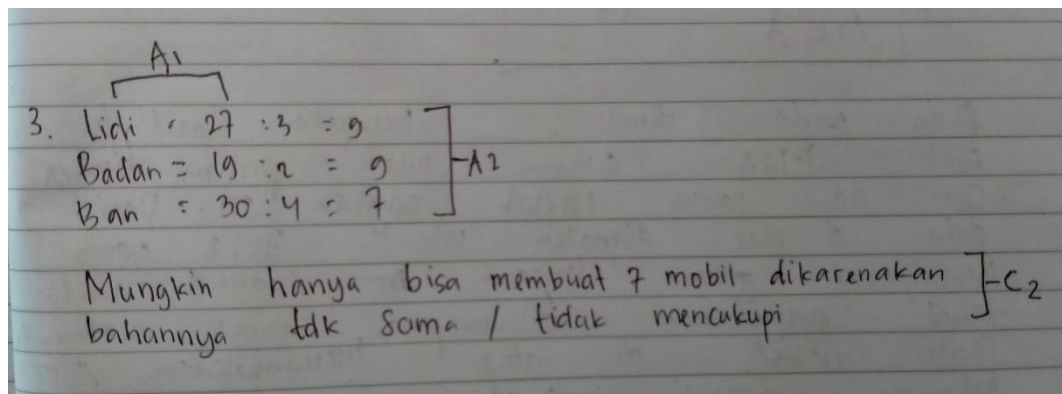 A1
3. Lidi : 27 : 3 = 9
Badan = 19 : 2 = 9
A2
Ban = 30 : 4 = 7
Mungkin hanya bisa membuat 7 mobil dikarenakan
C2
bahannya tdk sama / tidak mencukupi